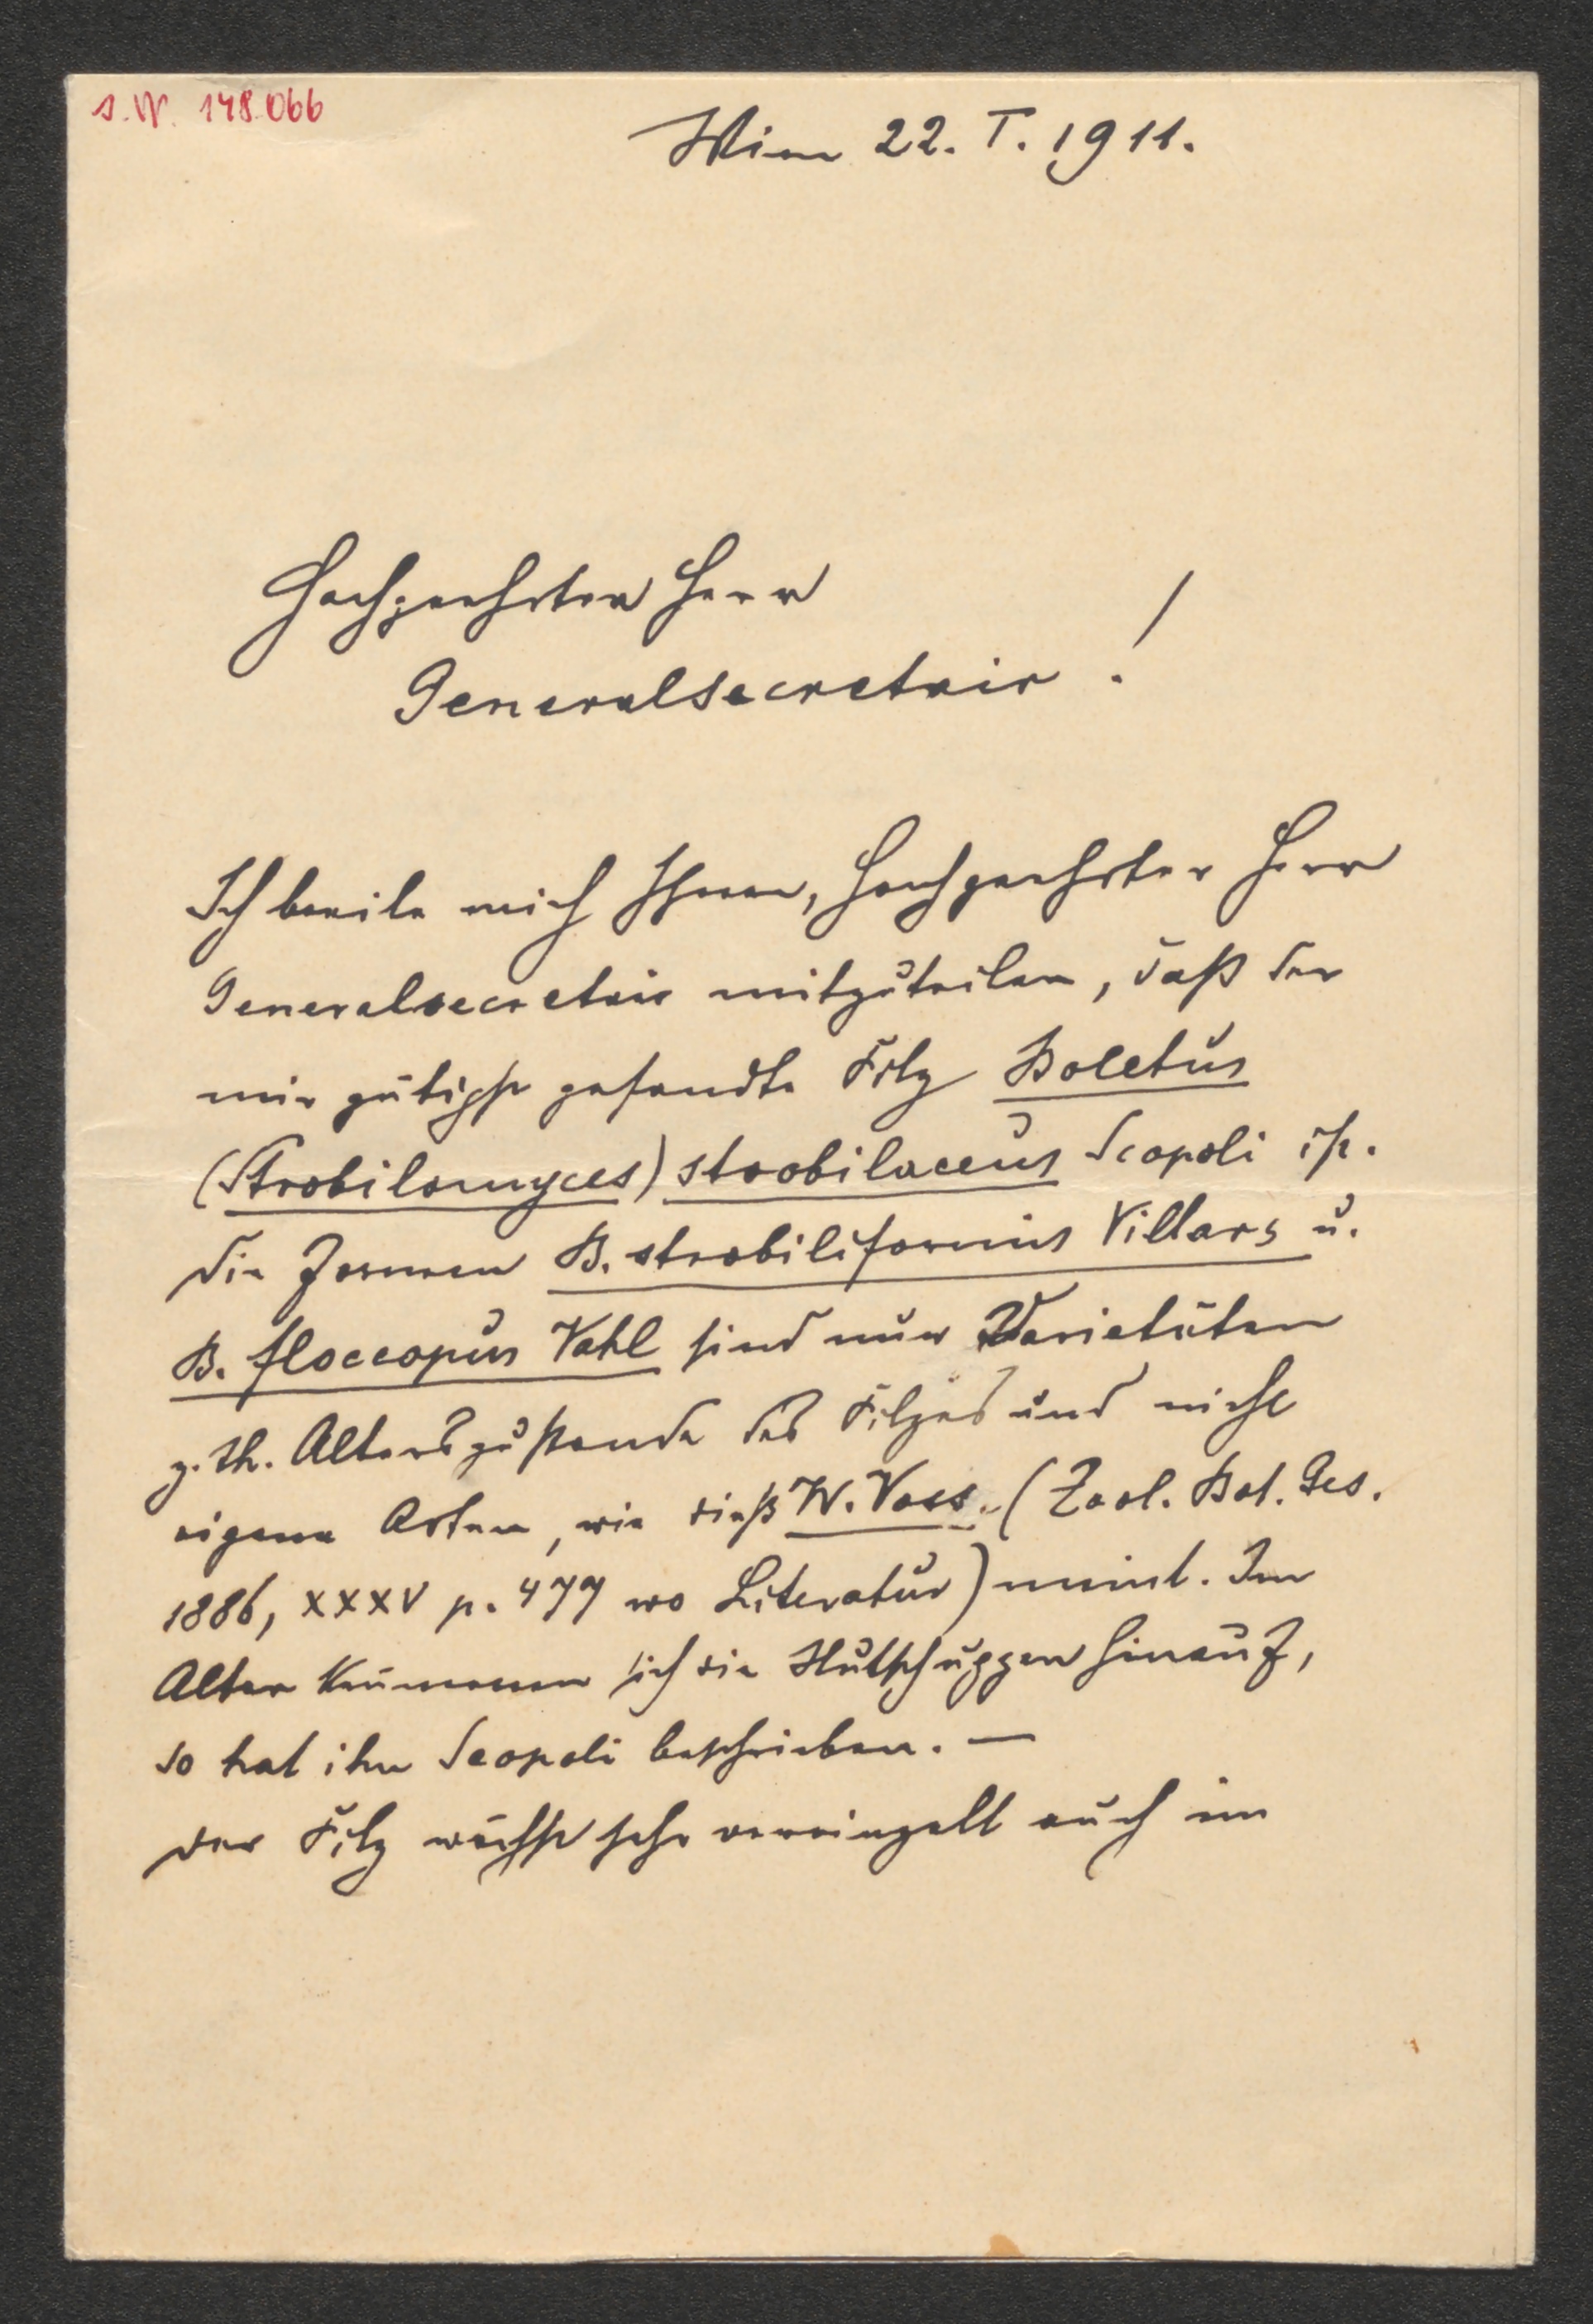 I.N. 148.066
Wien 22. I. 1911.
Hochgeehrter Herr
Generalsecretair !
Ich beeile mich Ihnen, hochgeehrter Herr
Generalsecretair mitzuteilen, daß der
mir gütigst gesandte Pilz Boletus
(Strobilomyces) strobilaceus Scopoli ist.
Die Formen B. strobiliformis Villars u.
B. floccopus Vahl sind nur Varietäten
z. th. Alterszustände des Pilzes und nicht
eigene Arten, wie dieß W. Voss. (Zool. Bot. Ges.
1886, XXXV p. 477 wo Literatur) meint. Im
Alter krümmen sich die Hutschuppen hinauf,
so hat ihn Scopoli beschrieben. —
Der Pilz wächst sehr vereinzelt auch im